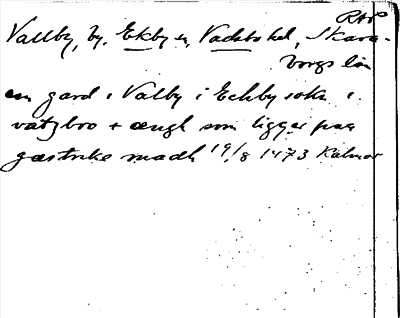 RAP
Valby, by, Ekby sn, Vadsbo hd, Skara-
borgs län
en gard i Valby i Echby sokn i
vatzboo + ængh som ligger paa
gæstrike madh 19/8 1473 Kalmar